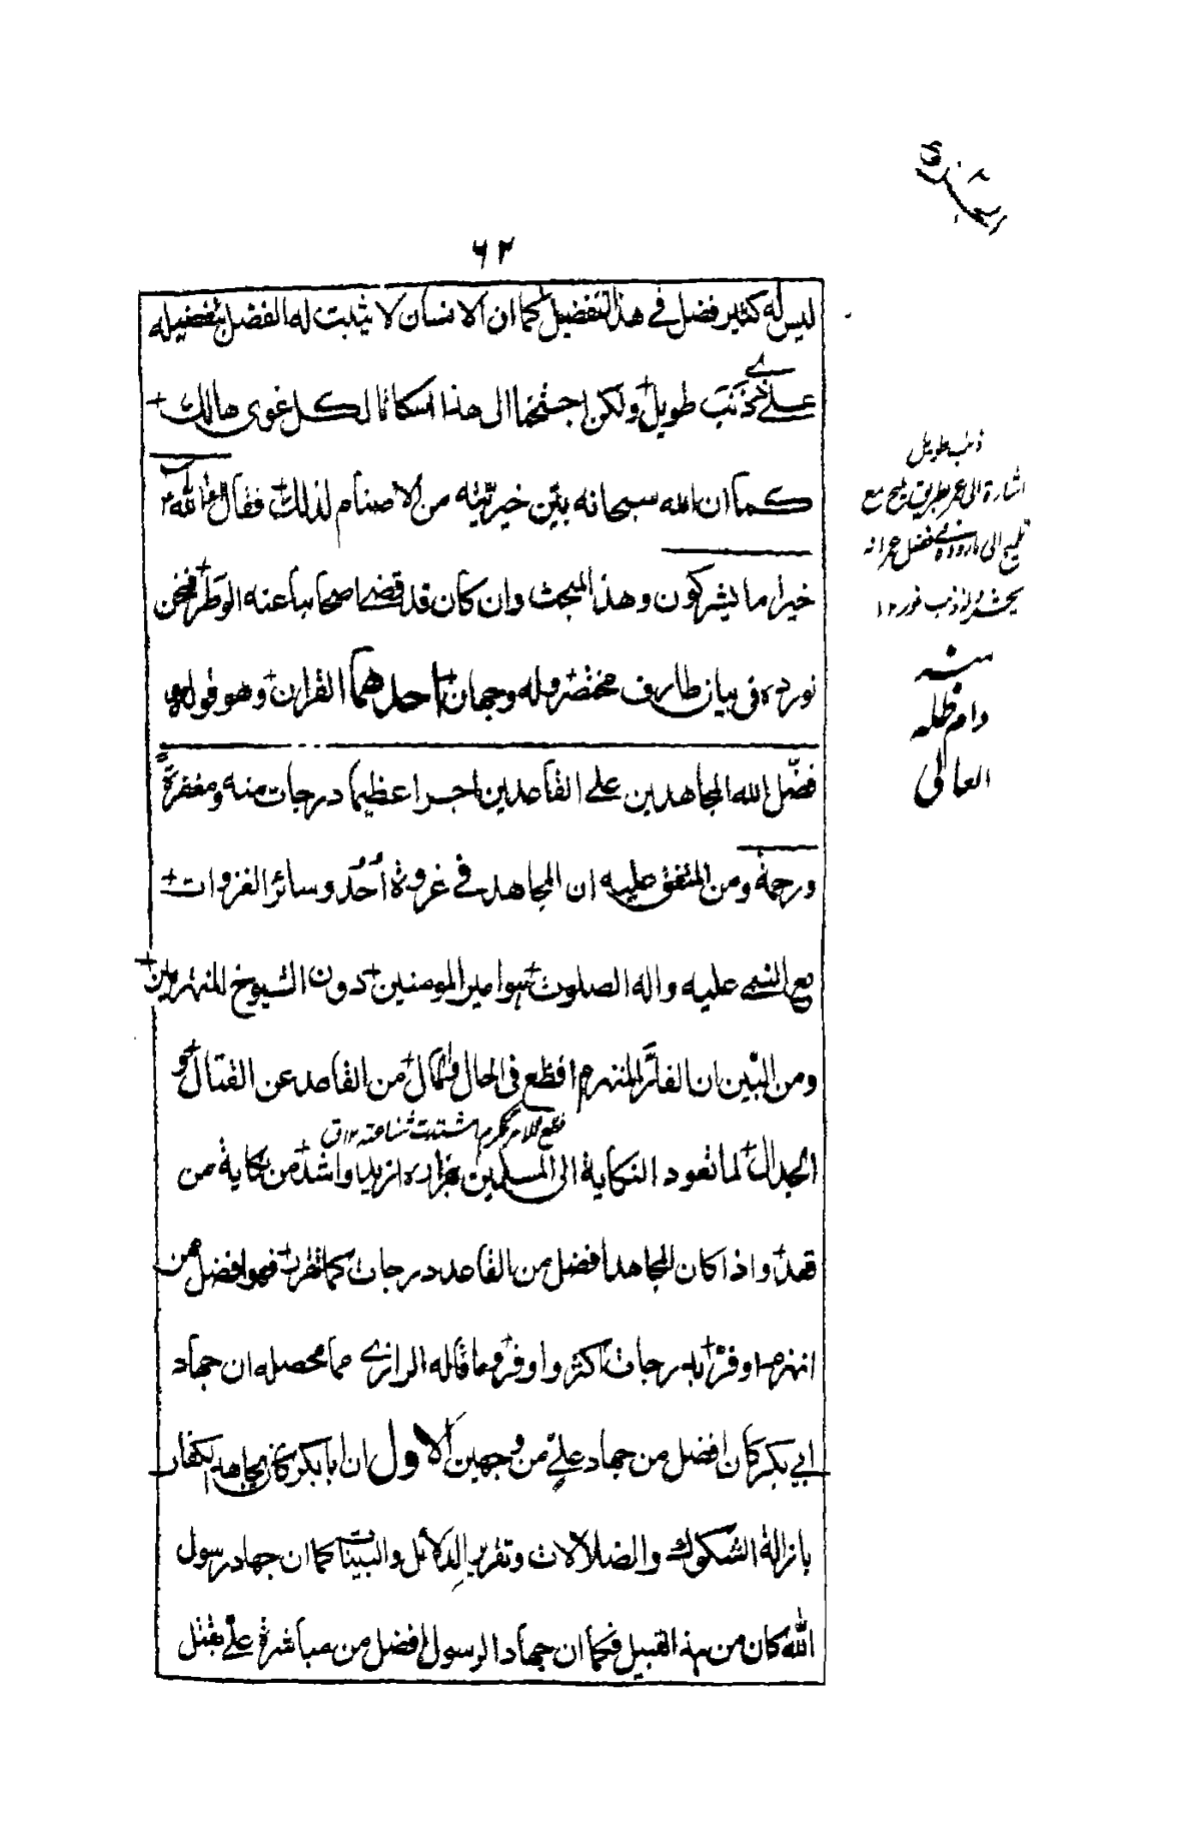 ٦٢
ليس له كثير فضل في هذا التفضيل كما ان الانسان لا يثبت له الفضل بتفضيله
على ذي ذنب طويل ولكن احتجنا الى هذا اسكاتا لكل غوى هالك
كما ان الله سبحانه بيّن خيريّته من الاصنام لذلك فقال الله
خير اما يشركون وهذا المبحث وان كان قد قضى اصحابنا عنه الوطر فنحن
نورده في بيان طارف مختصر وله وجهان احدهما القران وهو قوله
فضّل الله المجاهدين على القاعدين اجرا عظيما درجات منه ومغفرةً
ورحمة ومن المتفق عليه ان المجاهد في غزوة اُحُد وسائر الغزوات
مع النبي عليه واله الصلوت هو امير المومنين دون الشيوخ المنهزمين
ومن البيّن ان الفارّ المنهزم افظع في الحال والمآل من القاعد عن القتال و
فظع الامر ككرم اشتدت شناعته ١٢ ق
الجدال لما تعود النكاية الى المسلمين بفراره ازيد واشد من نكاية من
قعد واذا كان المجاهد افضل من القاعد درجات كما تقرر فهو افضل ممن
انهزم او فرّ بدرجات اكثر واوفر وما قاله الرازي مما محصله ان جهاد
ابي بكر كان افضل من جهاد عليّ من وجهين الاول ان ابا بكر كان يجاهد الكفار
بازالة الشكوك والضلالات وتقرير الدلائل والبينات كما ان جهاد رسول
الله كان من هذا القبيل فكما ان جهاد الرسول افضل من مباشرة عليّ بقتل
ذنب طويل
اشارة الى عمر بطريق مليح مع
تلميح الى ما رووه في فضل عمر انه
منه
دام ظله
العالى